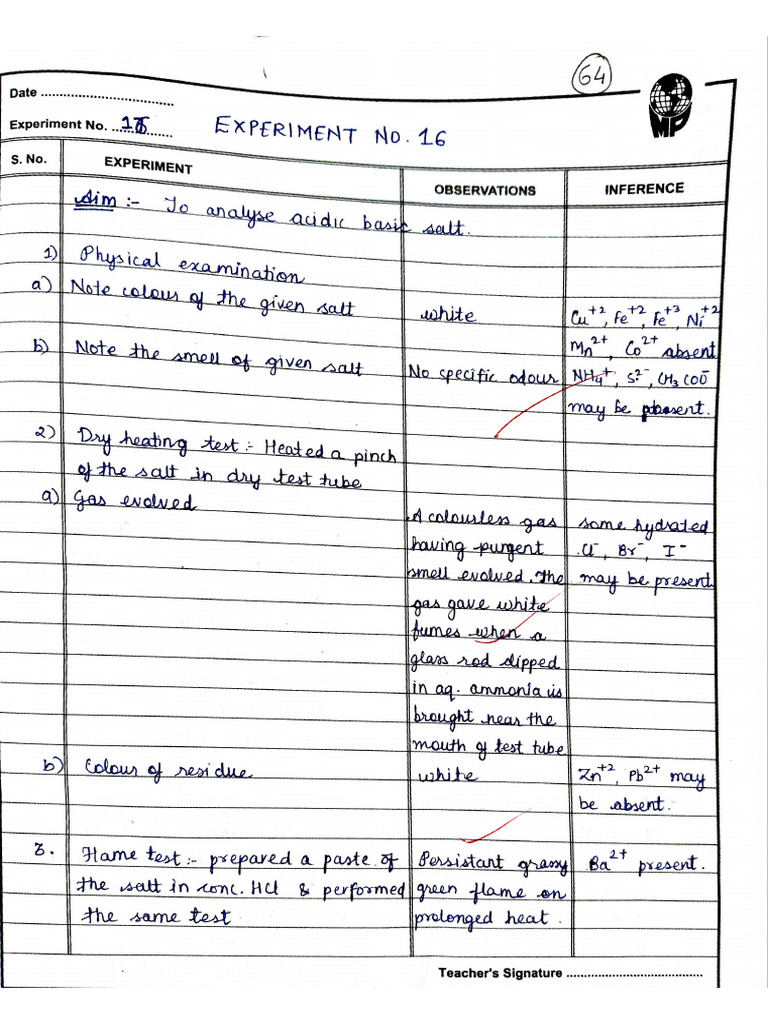 64
Date
MP
Experiment No. 16 EXPERIMENT NO. 16
S. No. EXPERIMENT OBSERVATIONS INFERENCE
Aim :- To analyse acidic basic salt.
1) Physical examination
a) Note colour of the given salt white Cu+2, Fe+2, Fe+3, Ni+2
Mn2+, Co2+ absent
b) Note the smell of given salt No specific odour NH4+, S2-, CH3COO-
may be absent.
2) Dry heating test :- Heated a pinch
of the salt in dry test tube
a) Gas evolved A colourless gas some hydrated
having pungent Cl-, Br-, I-
smell evolved. The may be present
gas gave white
fumes when a
glass rod dipped
in aq. ammonia is
brought near the
mouth of test tube
b) Colour of residue white Zn+2, Pb2+ may
be absent.
3. Flame test :- prepared a paste of Persistant grassy Ba2+ present.
the salt in conc. HCl & performed green flame on
the same test prolonged heat.
Teacher's Signature